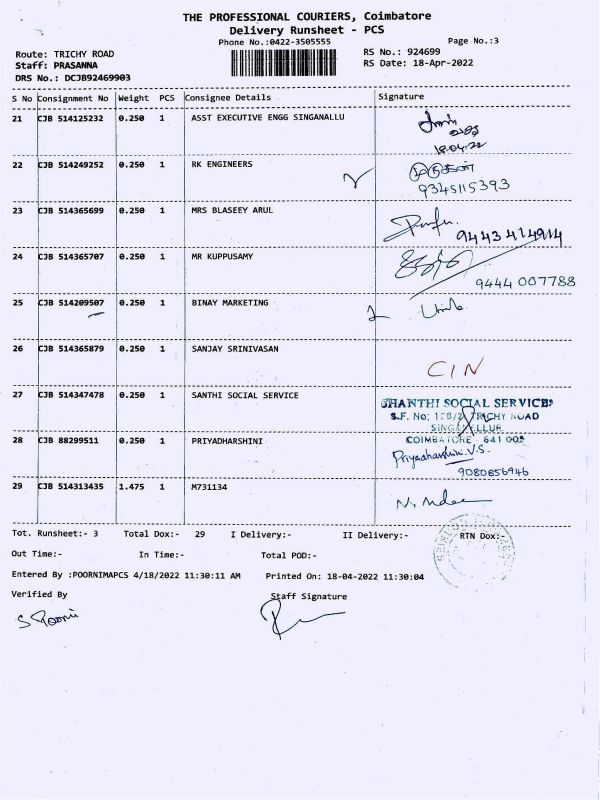 THE PROFESSIONAL COURIERS, Coimbatore
Delivery Runsheet - PCS
Phone No.:0422-3505555
Page No.:3
Route: TRICHY ROAD
RS No.: 924699
Staff: PRASANNA
RS Date: 18-Apr-2022
DRS No.: DCJB92469903
S No Consignment No Weight PCS Consignee Details Signature
21 CJB 514125232 0.250 1 ASST EXECUTIVE ENGG SINGANALLU
18.04.22
22 CJB 514249252 0.250 1 RK ENGINEERS
9345115393
23 CJB 514365699 0.250 1 MRS BLASEEY ARUL
9443414914
24 CJB 514365707 0.250 1 MR KUPPUSAMY
9444 007788
25 CJB 514209507 0.250 1 BINAY MARKETING
26 CJB 514365879 0.250 1 SANJAY SRINIVASAN
CIN
27 CJB 514347478 0.250 1 SANTHI SOCIAL SERVICE
SHANTHI SOCIAL SERVICES
S.F. No: TRICHY ROAD
COIMBATORE - 641 005
28 CJB 88299511 0.250 1 PRIYADHARSHINI
Priyadharshini.V.S.
9080856946
29 CJB 514313435 1.475 1 M731134
Tot. Runsheet:- 3 Total Dox:- 29 I Delivery:- II Delivery:- RTN Dox:-
Out Time:- In Time:- Total POD:-
Entered By :POORNIMAPCS 4/18/2022 11:30:11 AM Printed On: 18-04-2022 11:30:04
Verified By Staff Signature